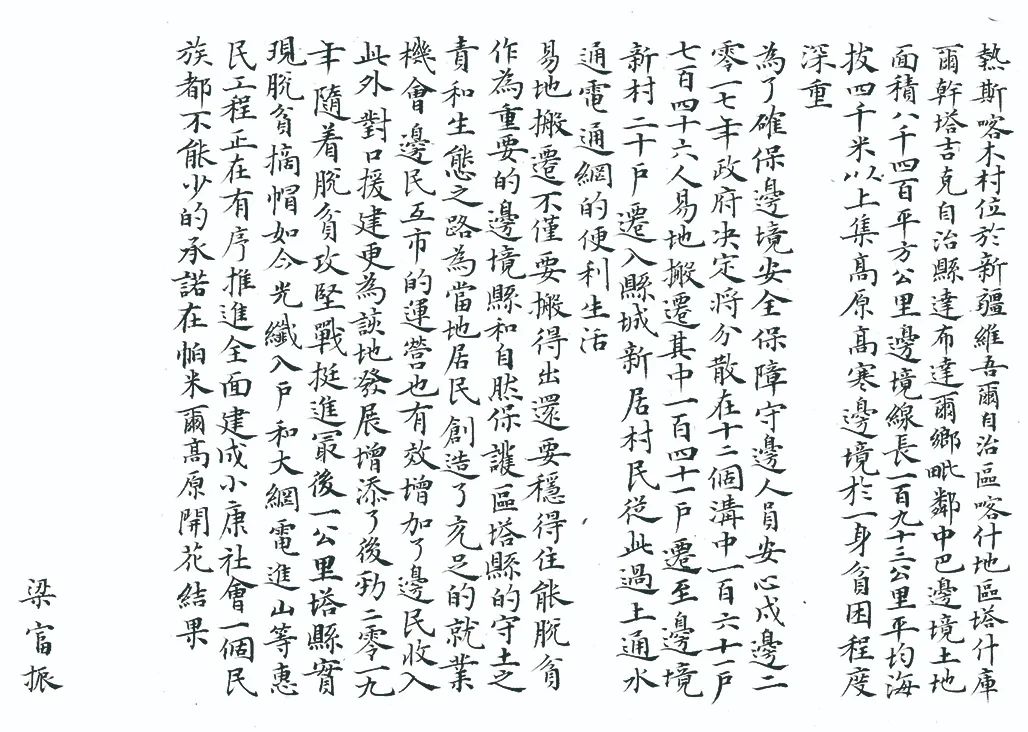 熱斯喀木村位於新疆維吾爾自治區喀什地區塔什庫
爾幹塔吉克自治縣達布達爾鄉毗鄰中巴邊境土地
面積八千四百平方公里邊境線長一百九十三公里平均海
拔四千米以上集高原高寒邊境於一身貧困程度
深重
為了確保邊境安全保障守邊人員安心戍邊二
零一七年政府決定將分散在十二個溝中一百六十一戶
七百四十六人易地搬遷其中一百四十一戶遷至邊境
新村二十戶遷入縣城新居村民從此過上通水
通電通網的便利生活
易地搬遷不僅要搬得出還要穩得住能脫貧
作為重要的邊境縣和自然保護區塔縣的守土之
責和生態之路為當地居民創造了充足的就業
機會邊民互市的運營也有效增加了邊民收入
此外對口援建更為該地發展增添了後勁二零一九
年隨着脫貧攻堅戰挺進最後一公里塔縣實
現脫貧摘帽如今光纖入戶和大網電進山等惠
民工程正在有序推進全面建成小康社會一個民
族都不能少的承諾在帕米爾高原開花結果
梁富振